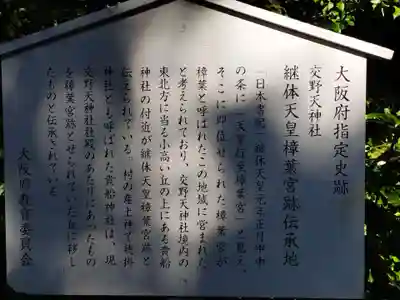 大阪府指定史跡
交野天神社
継体天皇樟葉宮跡伝承地
『日本書紀』継体天皇元年正月甲申
の条に「天皇行至樟葉宮」と見え、
そこに即位せられた樟葉宮が
樟葉と呼ばれたこの地域に営まれた
と考えられており、交野天神社境内の
東北方に当る小高い丘の上にある貴船
神社の付近が継体天皇樟葉宮跡と
伝えられている。村の産土神で
神社とも呼ばれた貴船神社は、現
交野天神社社殿のあた りにあったもの
を樟葉宮跡とせられていた丘に移し
たものと伝承されている
大阪府教育委員会